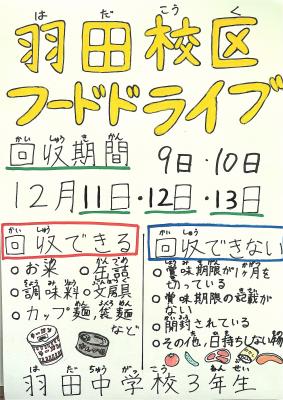 羽田校区
はだこうく
フードドライブ
回収期間 9日・10日
かいしゅうきかん
12月11日・12日・13日
回収できる
かいしゅう
○お米 ○缶詰
○調味料 ○文房具
○カップ麺、袋麺
など
回収できない
かいしゅう
○賞味期限が1ヶ月を
切っている
○賞味期限の記載が
ない
○開封されている
○その他、日持ちしない物
羽田中学校3年生